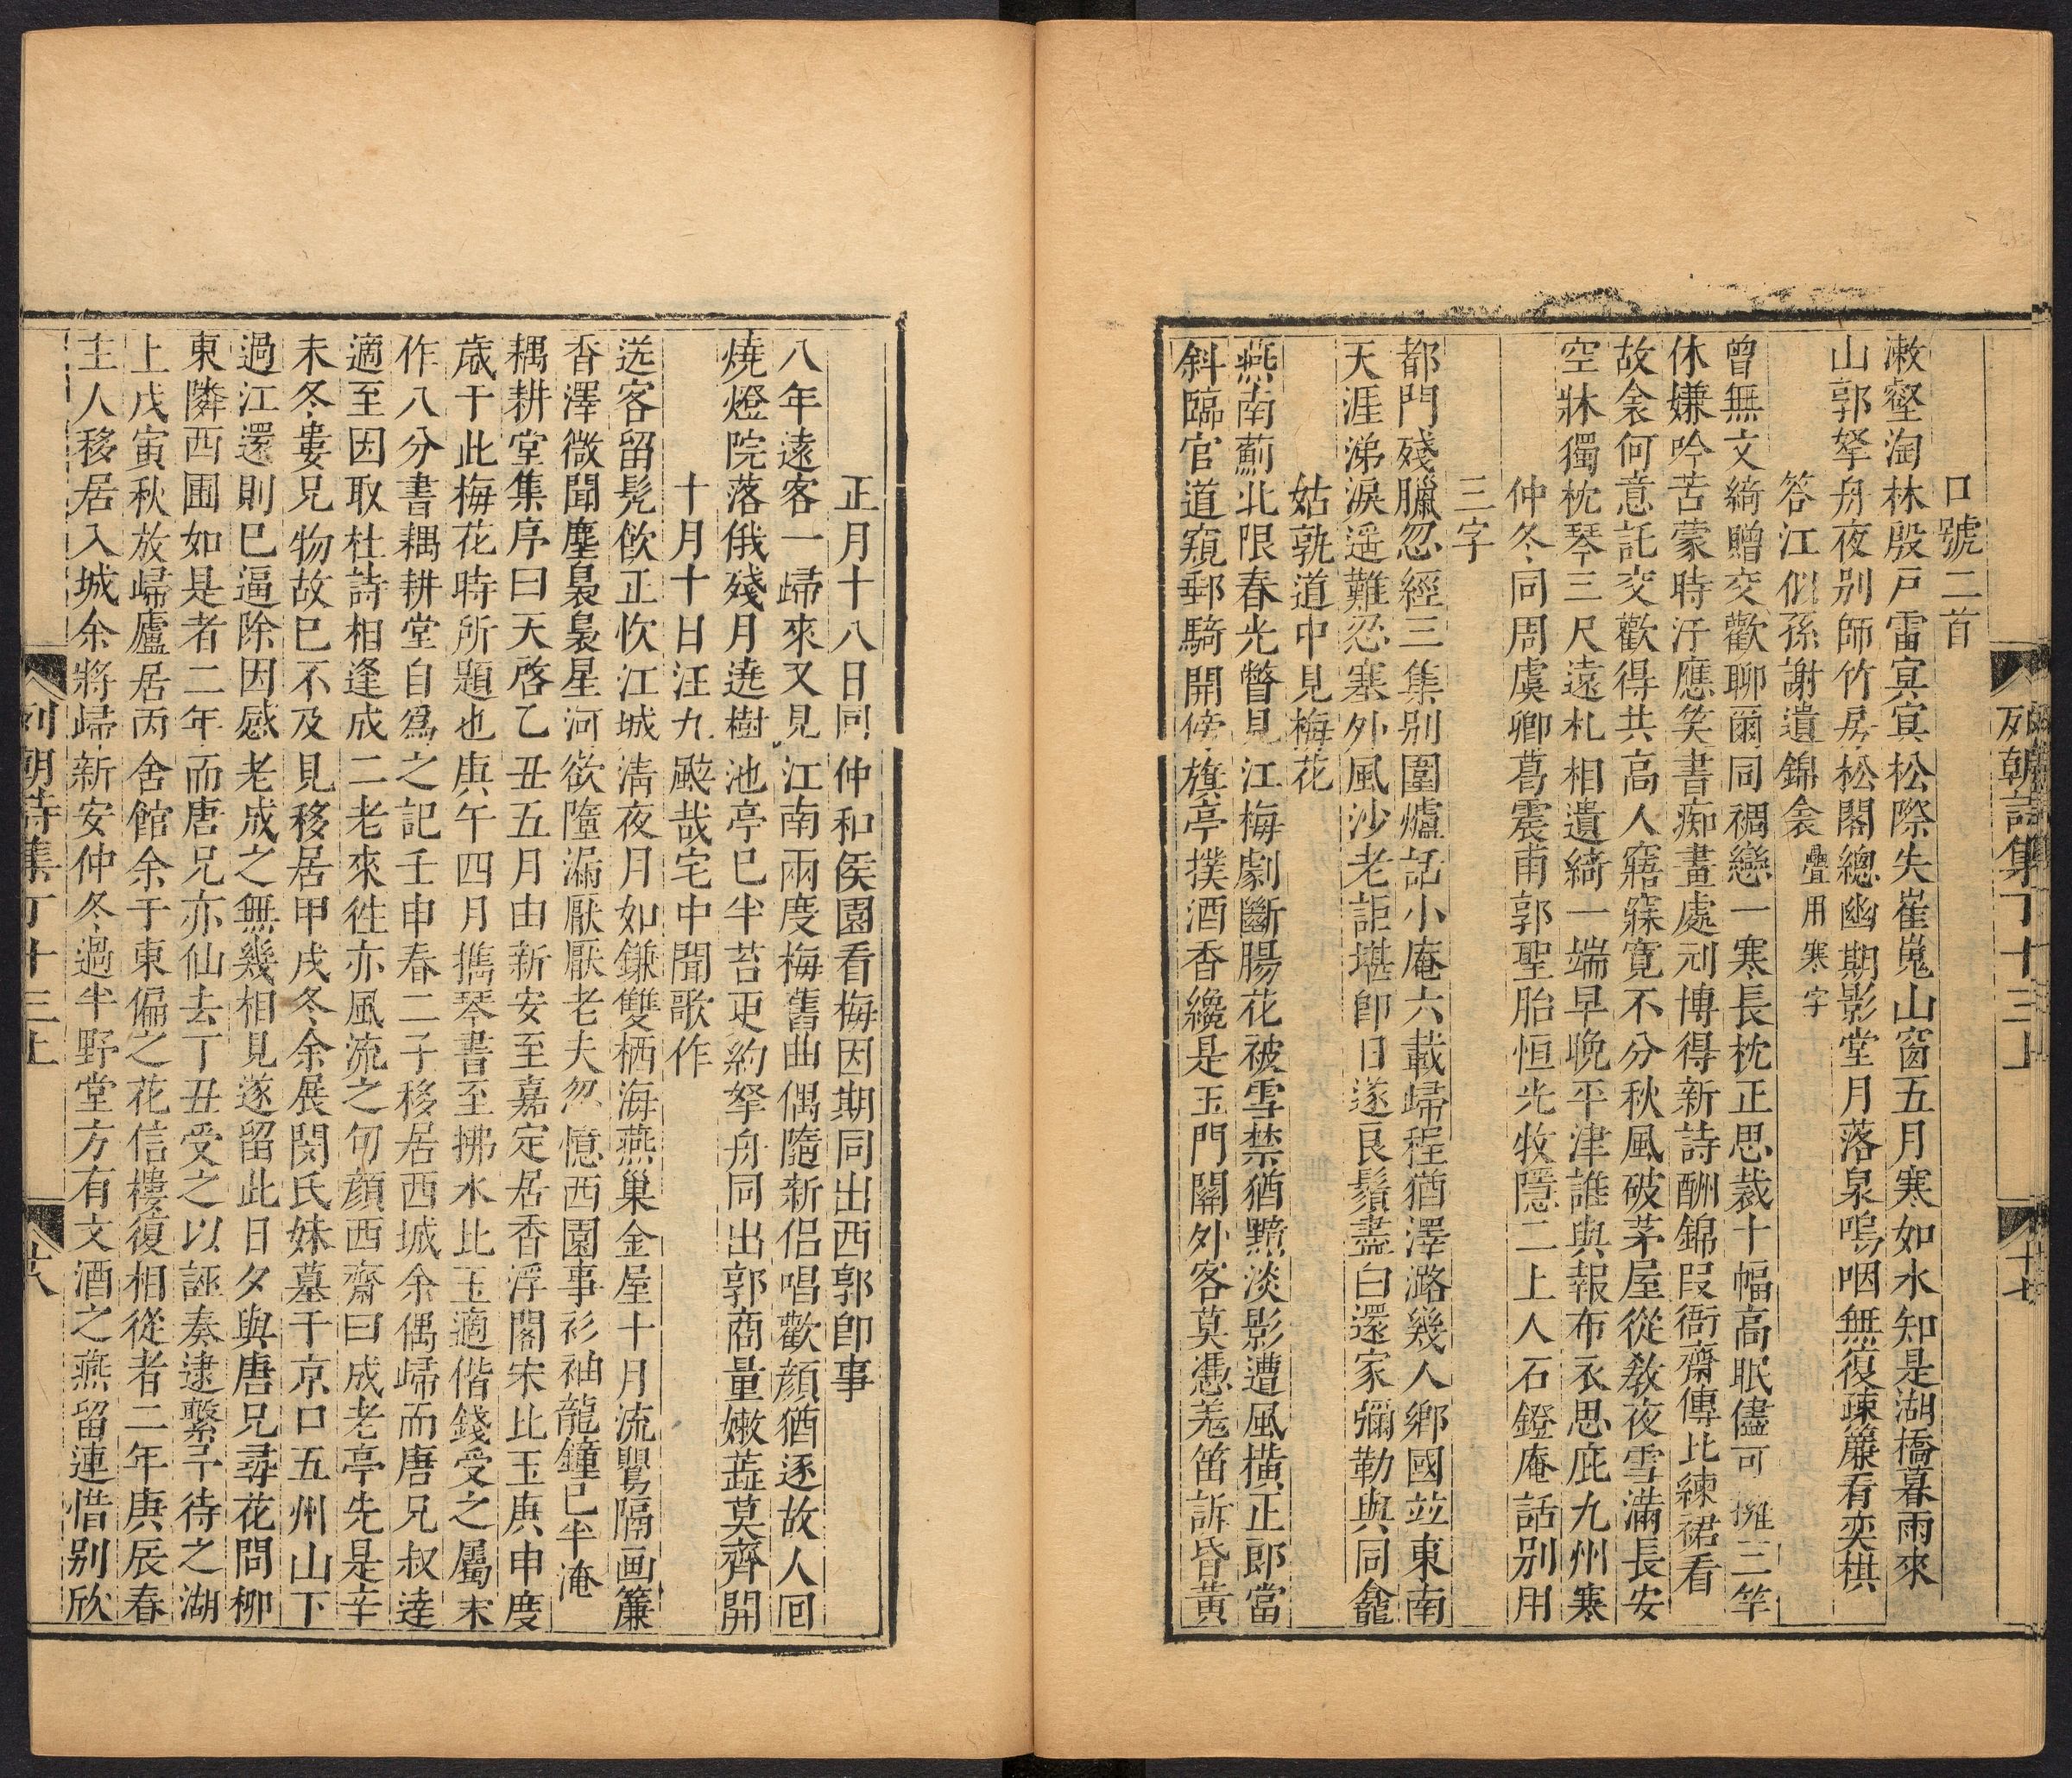 列朝詩集丁十三上
十七
口號二首
漱壑淘林殷戶雷冥冥松際失崔嵬山窗五月寒如水知是湖橋暮雨來
山郭拏舟夜別師竹房松閣總幽期影堂月落泉嗚咽無復疎簾看奕棋
答江似孫謝遺錦衾疊用寒字
曾無文綺贈交歡聊爾同裯戀一寒長枕正思裁十幅高眠儘可擁三竿
休嫌吟苦蒙時汙應笑書痴畫處刓博得新詩酬錦叚衙齋傳比練裙看
故衾何意託交歡得共高人寤寐寬不分秋風破茅屋從敎夜雪滿長安
空牀獨枕琴三尺遠札相遺綺一端早晚平津誰與報布衣思庇九州寒
仲冬同周虞卿葛震甫郭聖胎恒光牧隱二上人石鐙庵話別用
三字
都門殘臘忽經三集別圍爐話小庵六載歸程猶澤潞幾人鄉國竝東南
天涯涕淚遥難忍塞外風沙老詎堪卽日遂良鬚盡白還家彌勒與同龕
姑孰道中見梅花
燕南薊北限春光瞥見江梅劇斷腸花被雪禁猶黯淡影遭風横正郎當
斜臨官道窺郵騎開傍旗亭撲酒香纔是玉門關外客莫憑羌笛訴昏黃
正月十八日同仲和侯園看梅因期同出西郭卽事
八年遠客一歸來又見江南兩度梅舊曲偶隨新侣唱歡顔猶逐故人囘
燒燈院落俄殘月遶樹池亭巳半苔更約拏舟同出郭商量嫩蕋莫齊開
十月十日汪九厰哉宅中聞歌作
送客留髡飲正忺江城淸夜月如鎌雙栖海燕巢金屋十月流鶯隔画簾
香澤微聞塵裊裊星河欲墮漏厭厭老夫忽憶西園事衫袖龍鐘巳半淹
耦耕堂集序曰天啓乙丑五月由新安至嘉定居香浮閣宋比玉庚申度
歲于此梅花時所題也庚午四月攜琴書至拂水比玉適偕錢受之屬宋
作八分書耦耕堂自爲之記壬申春二子移居西城余偶歸而唐兄叔達
適至因取杜詩相逢成二老來徃亦風流之句顔西齋曰成老亭先是辛
未冬婁兄物故已不及見移居甲戌冬余展閔氏妹墓于京口五州山下
過江還則巳逼除因感老成之無幾相見遂留此日夕與唐兄尋花問柳
東隣西圃如是者二年而唐兄亦仙去丁丑受之以誣奏逮繫予待之湖
上戊寅秋放歸廬居丙舍館余于東偏之花信樓復相從者二年庚辰春
主人移居入城余將歸新安仲冬過半野堂方有文酒之燕留連惜別欣
列朝詩集丁十三上
十八